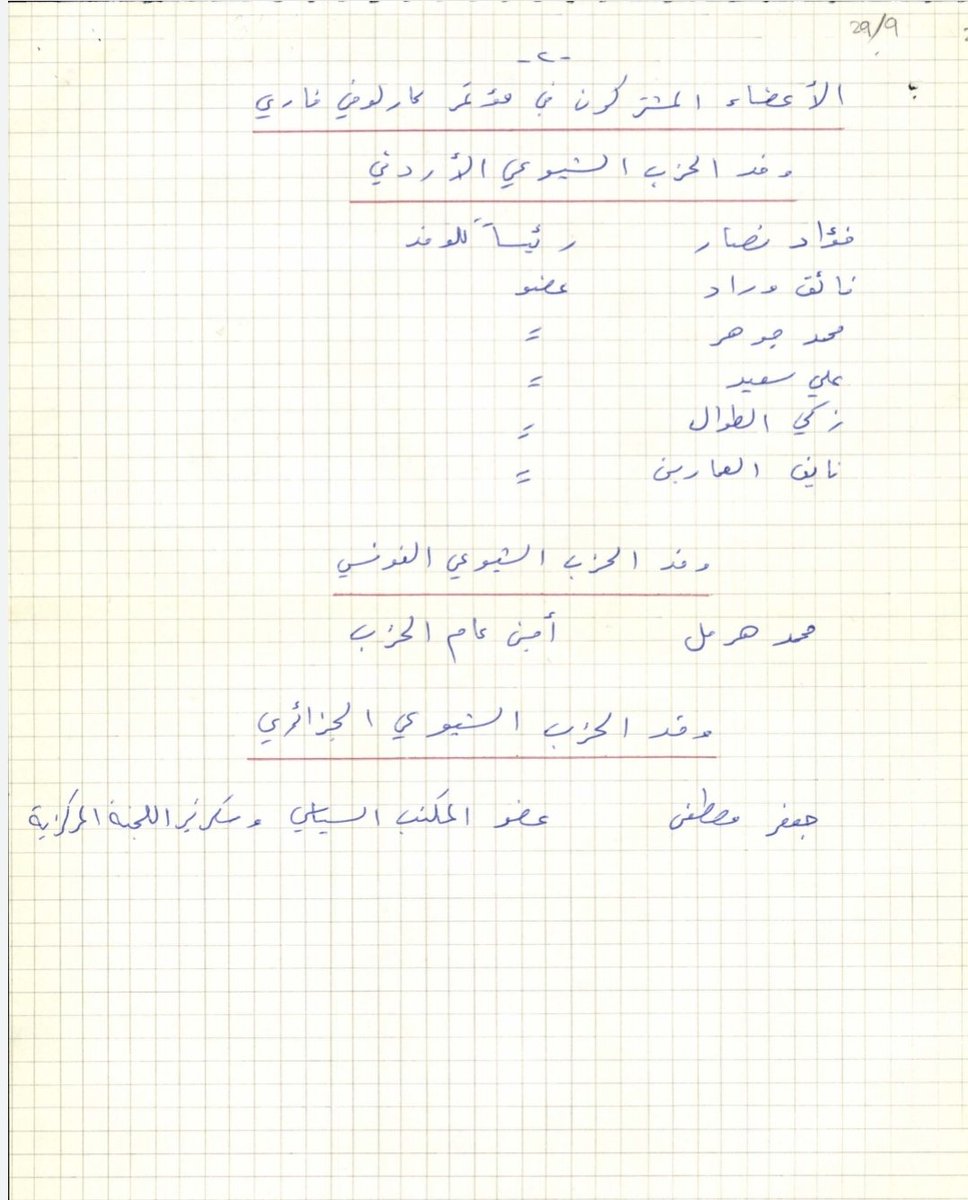 29/9
-٢-
الأعضاء المشتركون في مؤتمر كارلوفي فاري
وفد الحزب الشيوعي الأردني
فؤاد نصار رئيساً للوفد
فائق وراد عضو
محمد جوهر =
علي سعيد =
زكي الطوال =
نايف العمارين =
وفد الحزب الشيوعي التونسي
محمد هرمل أمين عام الحزب
وفد الحزب الشيوعي الجزائري
جعفر مصطفى عضو المكتب السياسي وسكرتير اللجنة المركزية